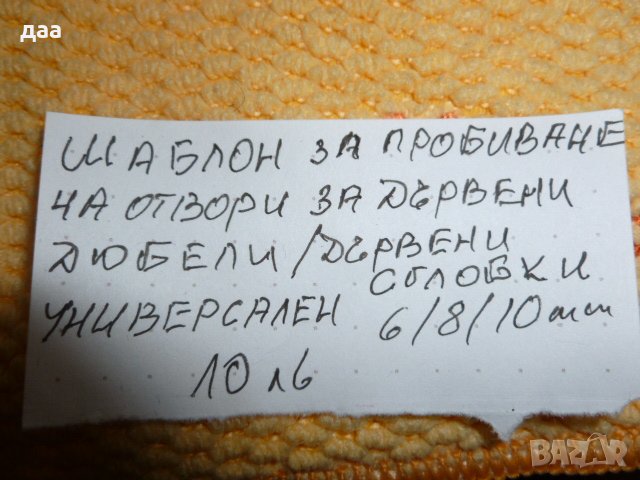 даа
ШАБЛОН ЗА ПРОБИВАНЕ
НА ОТВОРИ ЗА ДЪРВЕНИ
ДЮБЕЛИ / ДЪРВЕНИ
СГЛОБКИ
УНИВЕРСАЛЕН 6/8/10mm
10 лв
BAZAR